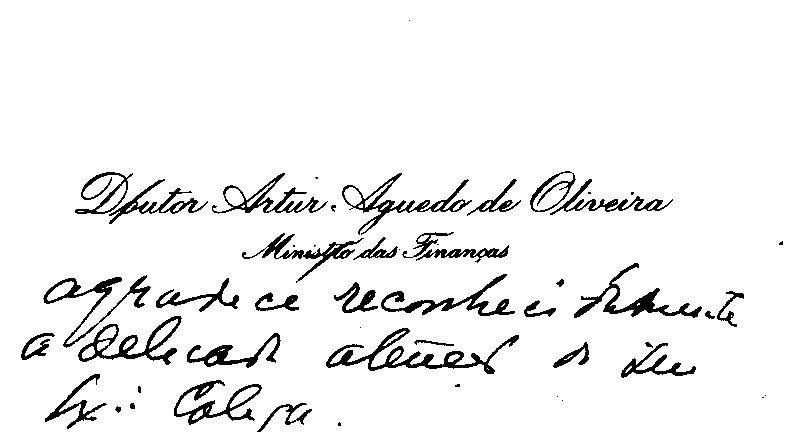 Doutor Artur Aguedo de Oliveira
Ministro das Finanças
agradece reconhecidamente
a delicada atenção do seu
Ex.º Colega.